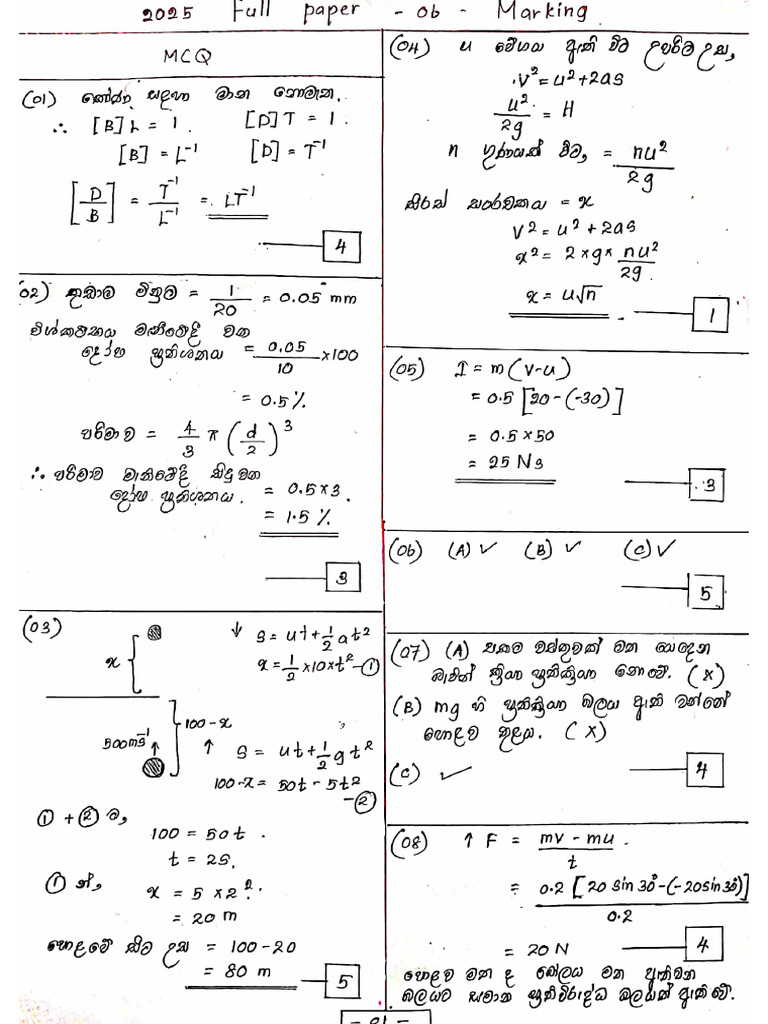 2025 Full paper - 06 - Marking
MCQ
(01) කෝණ සඳහා මාන නොමැත.
∴ [B] L = 1. [D] T = 1.
[B] = L⁻¹ [D] = T⁻¹
[D/B] = T⁻¹/L⁻¹ = LT⁻¹
4
(02) කුඩාම මිනුම = 1/20 = 0.05 mm
විශ්කම්භය මැනීමේදී වන
දෝෂ ප්‍රතිශතය = 0.05/10 ×100
= 0.5%
පරිමාව = 4/3 π (d/2)³
∴ පරිමාව මැනීමේදී සිදුවන
දෝෂ ප්‍රතිශතය. = 0.5×3.
= 1.5%
3
(03)
x
↓ s = ut+1/2 at²
x = 1/2 ×10×t² —①
100-x
500ms⁻¹ ↑
↑ s = ut+1/2 gt²
100-x = 50t - 5t²
—②
① + ② ම,
100 = 50t.
t = 2s.
① න්,
x = 5 × 2².
= 20 m
පොළවේ සිට උස = 100-20
= 80 m
5
(04) u වේගය ඇති විට උපරිම උස,
v² = u²+2as
u²/2g = H
n ගුණයක් විට, = nu²/2g
සිරස් සංරචකය = x
v² = u²+2as
x² = 2×g× nu²/2g.
x = u√n
1
(05) I = m(v-u)
= 0.5 [20-(-30)]
= 0.5×50
= 25 Ns
3
(06) (A) ✓ (B) ✓ (C) ✓
5
(07) (A) එකම වස්තුවක් මත යෙදෙන
බැවින් ක්‍රියා ප්‍රතික්‍රියා නොවේ. (×)
(B) mg හි ප්‍රතික්‍රියා බලය ඇති වන්නේ
පොළව තුළය. (×)
(C) ✓
4
(08) ↑ F = mv - mu/t.
= 0.2 [20 sin 30° - (-20 sin 30°)]/0.2
= 20 N
4
පොළව මත ද බෝලය මත ඇතිවන
බලයට සමාන ප්‍රතිවිරුද්ධ බලයක් ඇතිවේ.
- 01 -